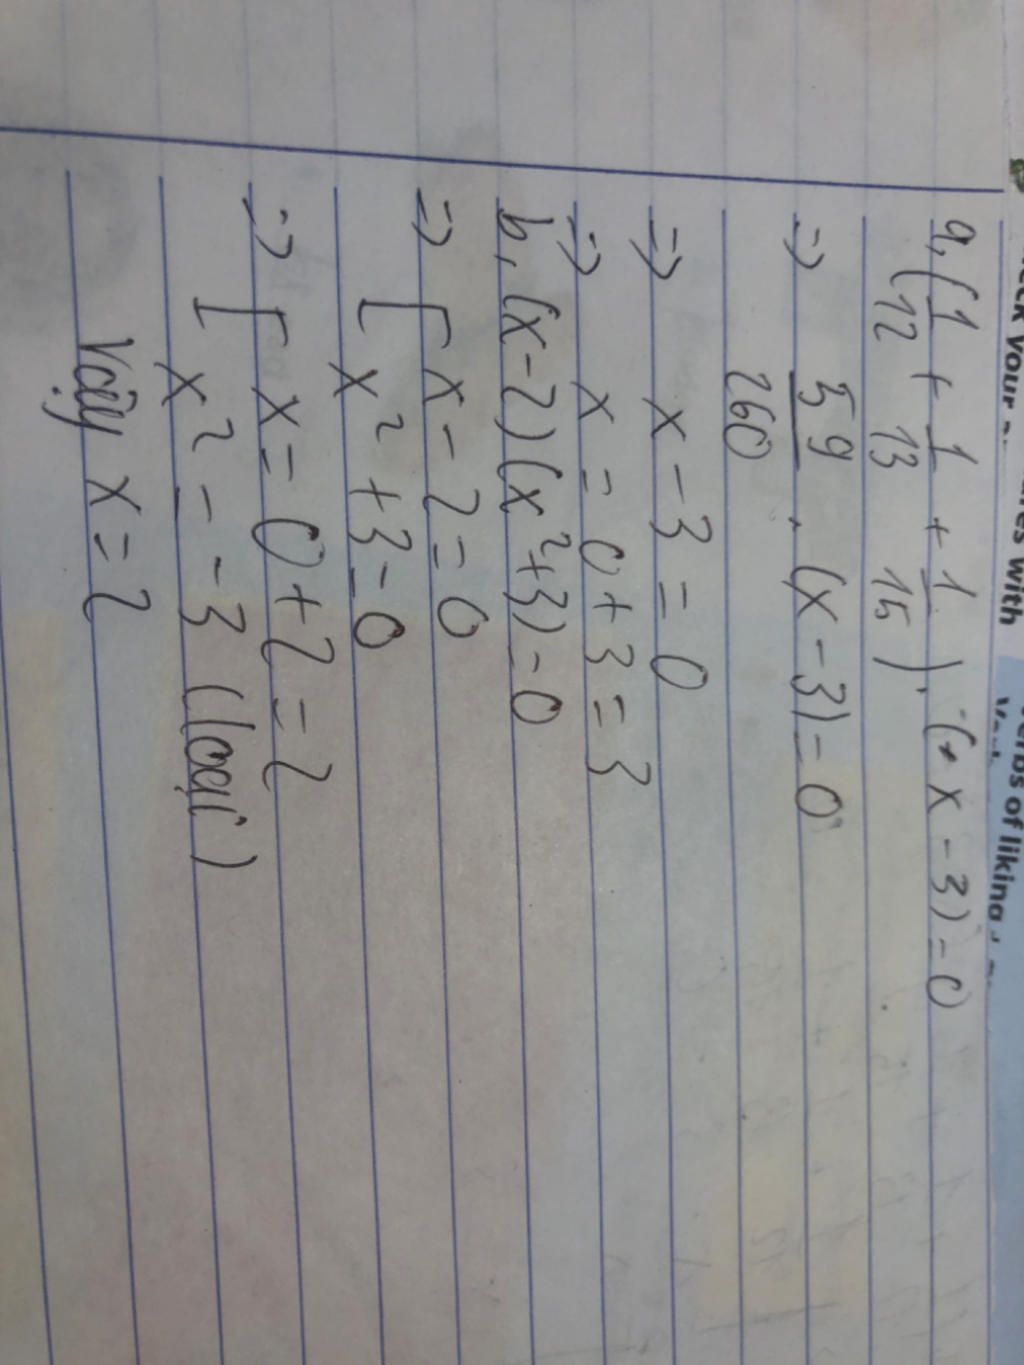 heck your
ares with
Verbs of liking
a, (1/12 + 1/13 + 1/15) . (x - 3) = 0
=> 59/260 . (x - 3) = 0
=> x - 3 = 0
=> x = 0 + 3 = 3
b, (x - 2)(x² + 3) = 0
=> [ x - 2 = 0
x² + 3 = 0
=> [ x = 0 + 2 = 2
x² = -3 (loại)
Vậy x = 2